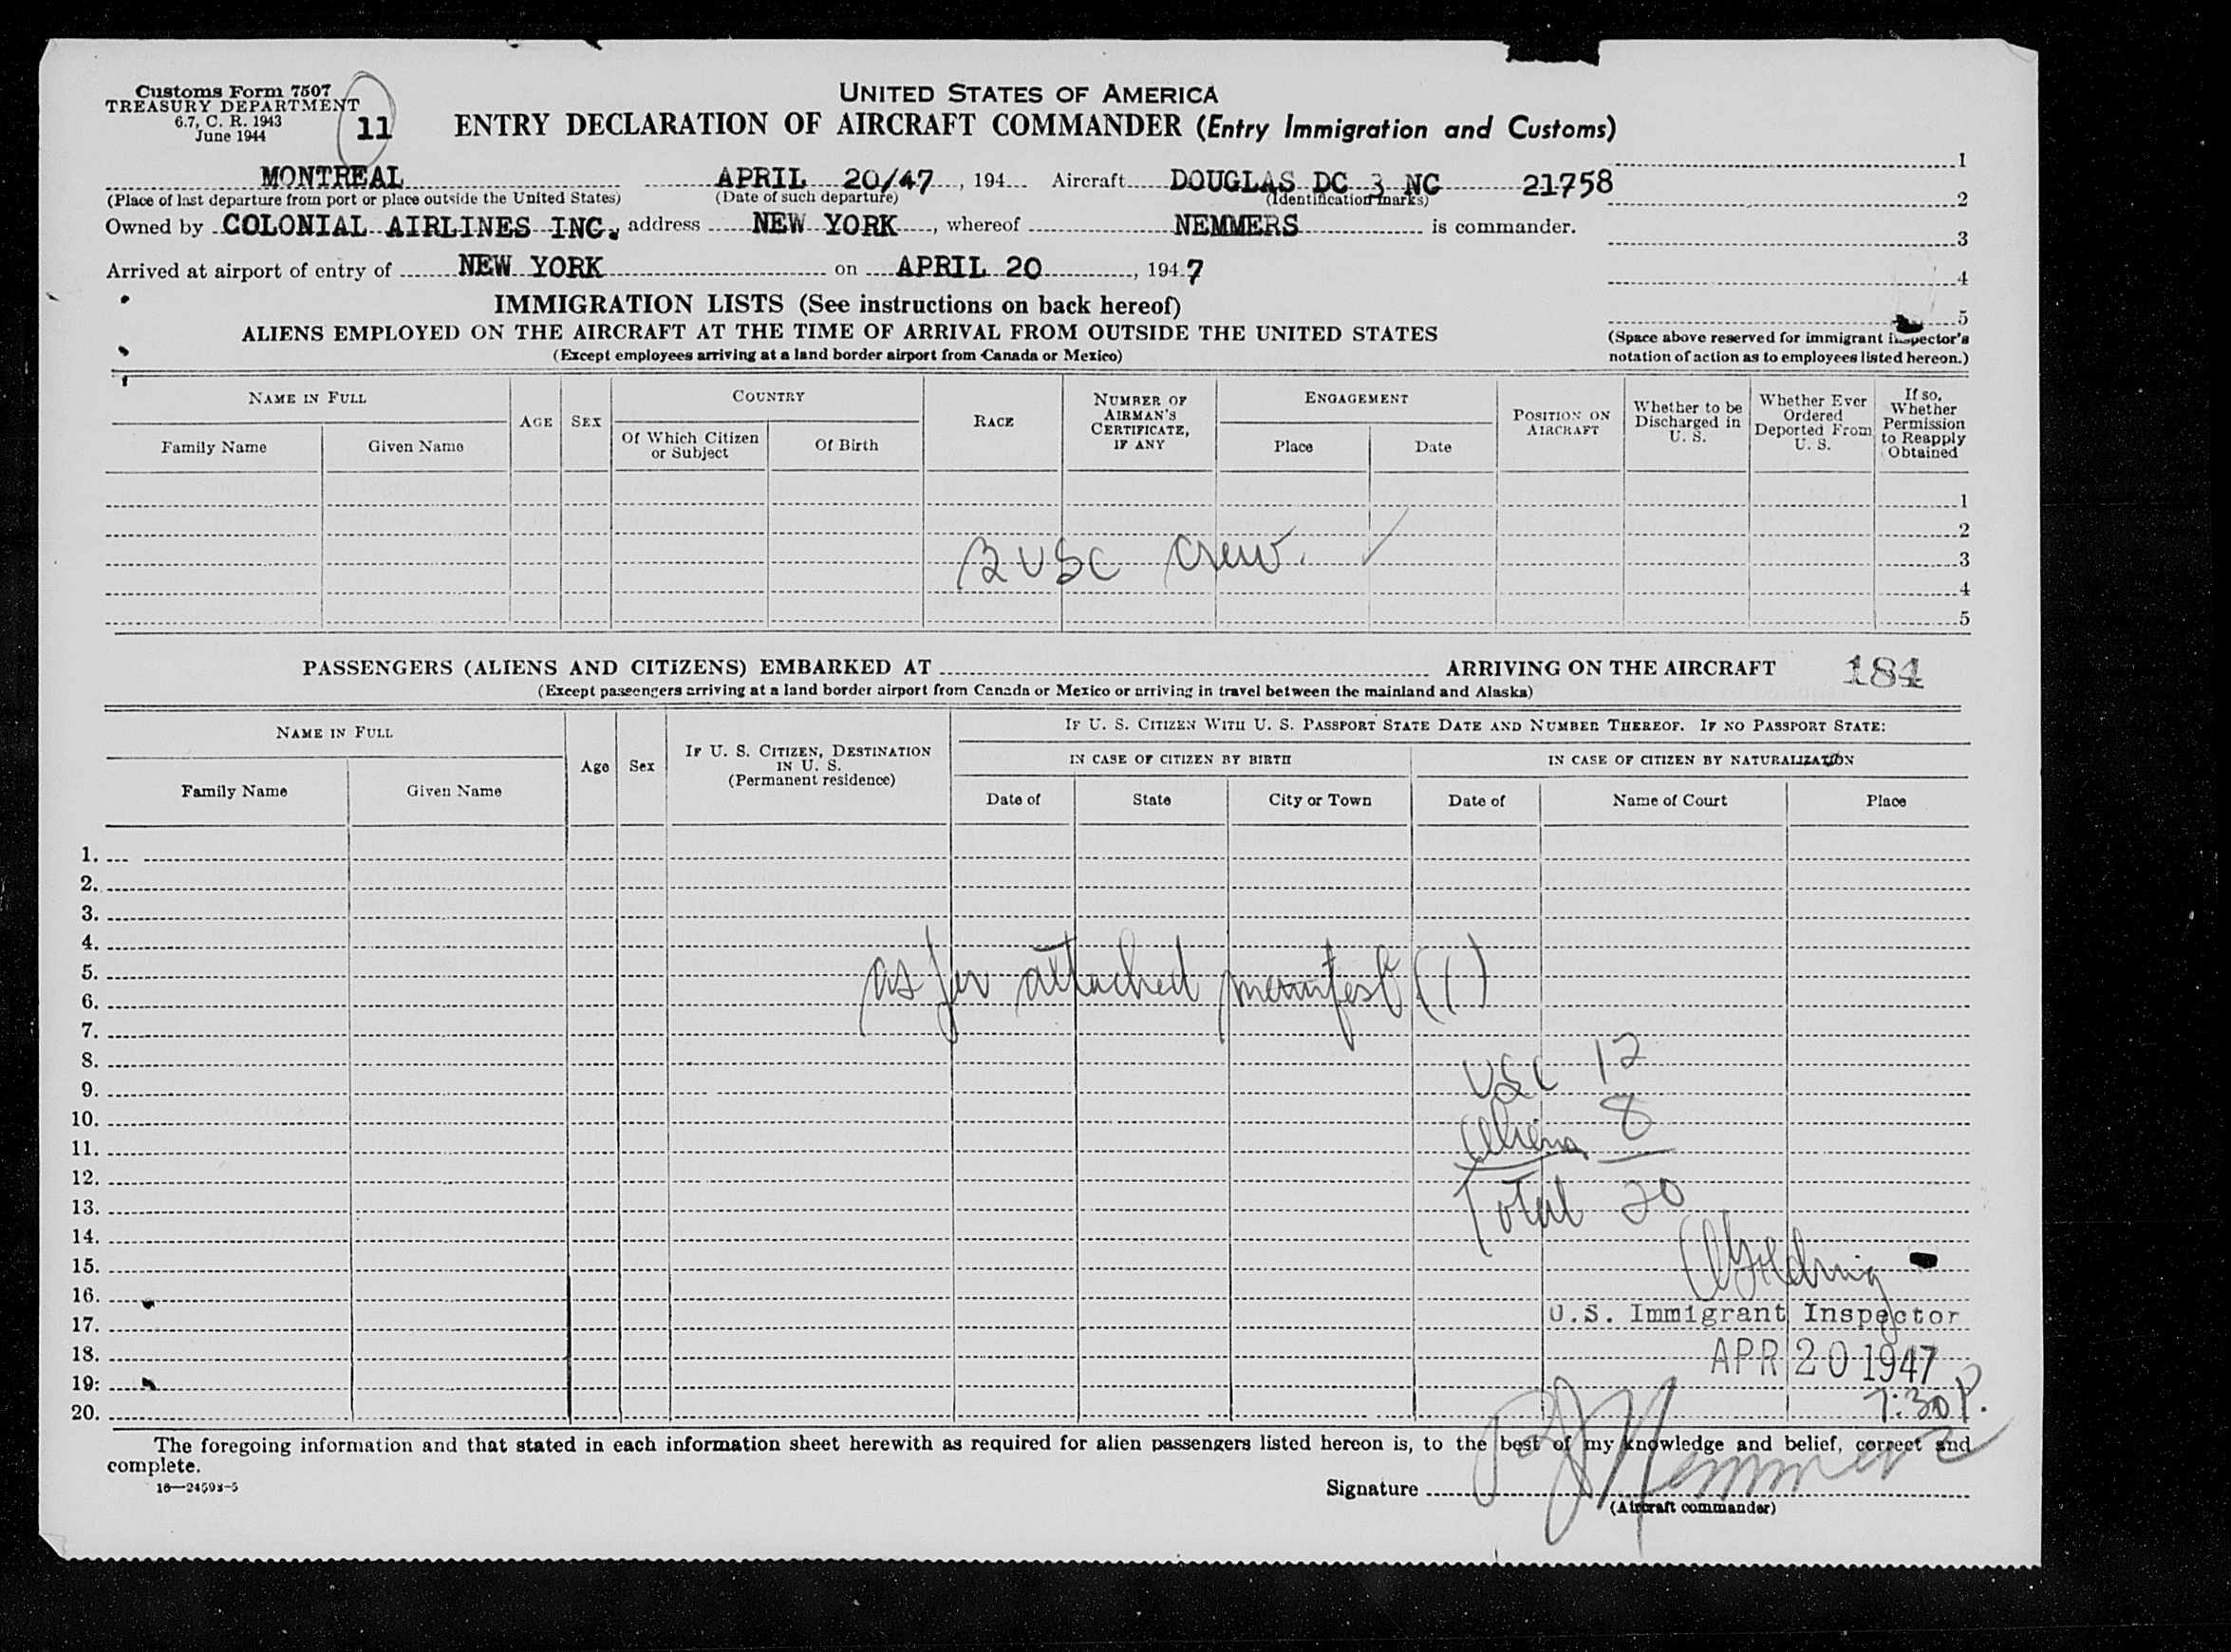 Customs Form 7507
TREASURY DEPARTMENT
6.7, C. R. 1943
June 1944
11
UNITED STATES OF AMERICA
ENTRY DECLARATION OF AIRCRAFT COMMANDER (Entry Immigration and Customs)
MONTREAL APRIL 20/47, 194 Aircraft DOUGLAS DC 3 NC 21758
(Place of last departure from port or place outside the United States) (Date of such departure) (Identification marks)
Owned by COLONIAL AIRLINES INC. address NEW YORK, whereof NEMMERS is commander.
Arrived at airport of entry of NEW YORK on APRIL 20, 1947
1
2
3
4
5
(Space above reserved for immigrant inspector's
notation of action as to employees listed hereon.)
IMMIGRATION LISTS (See instructions on back hereof)
ALIENS EMPLOYED ON THE AIRCRAFT AT THE TIME OF ARRIVAL FROM OUTSIDE THE UNITED STATES
(Except employees arriving at a land border airport from Canada or Mexico)
NAME IN FULL
Family Name
Given Name
AGE
SEX
COUNTRY
Of Which Citizen
or Subject
Of Birth
RACE
NUMBER OF
AIRMAN'S
CERTIFICATE,
IF ANY
ENGAGEMENT
Place
Date
POSITION ON
AIRCRAFT
Whether to be
Discharged in
U. S.
Whether Ever
Ordered
Deported From
U. S.
If so,
Whether
Permission
to Reapply
Obtained
1
2
3
4
5
3 USC crew.
PASSENGERS (ALIENS AND CITIZENS) EMBARKED AT ARRIVING ON THE AIRCRAFT 184
(Except passengers arriving at a land border airport from Canada or Mexico or arriving in travel between the mainland and Alaska)
NAME IN FULL
Family Name
Given Name
Age
Sex
IF U. S. CITIZEN, DESTINATION
IN U. S.
(Permanent residence)
IF U. S. CITIZEN WITH U. S. PASSPORT STATE DATE AND NUMBER THEREOF. IF NO PASSPORT STATE:
IN CASE OF CITIZEN BY BIRTH
Date of
State
City or Town
IN CASE OF CITIZEN BY NATURALIZATION
Date of
Name of Court
Place
1.
2.
3.
4.
5.
6.
7.
8.
9.
10.
11.
12.
13.
14.
15.
16.
17.
18.
19.
20.
as per attached manifest (1)
USC 12
Aliens 8
Total 20
Golding
U.S. Immigrant Inspector
APR 20 1947
7:30 P.
The foregoing information and that stated in each information sheet herewith as required for alien passengers listed hereon is, to the best of my knowledge and belief, correct and
complete.
16—24593-5
Signature Nemmers
(Aircraft commander)